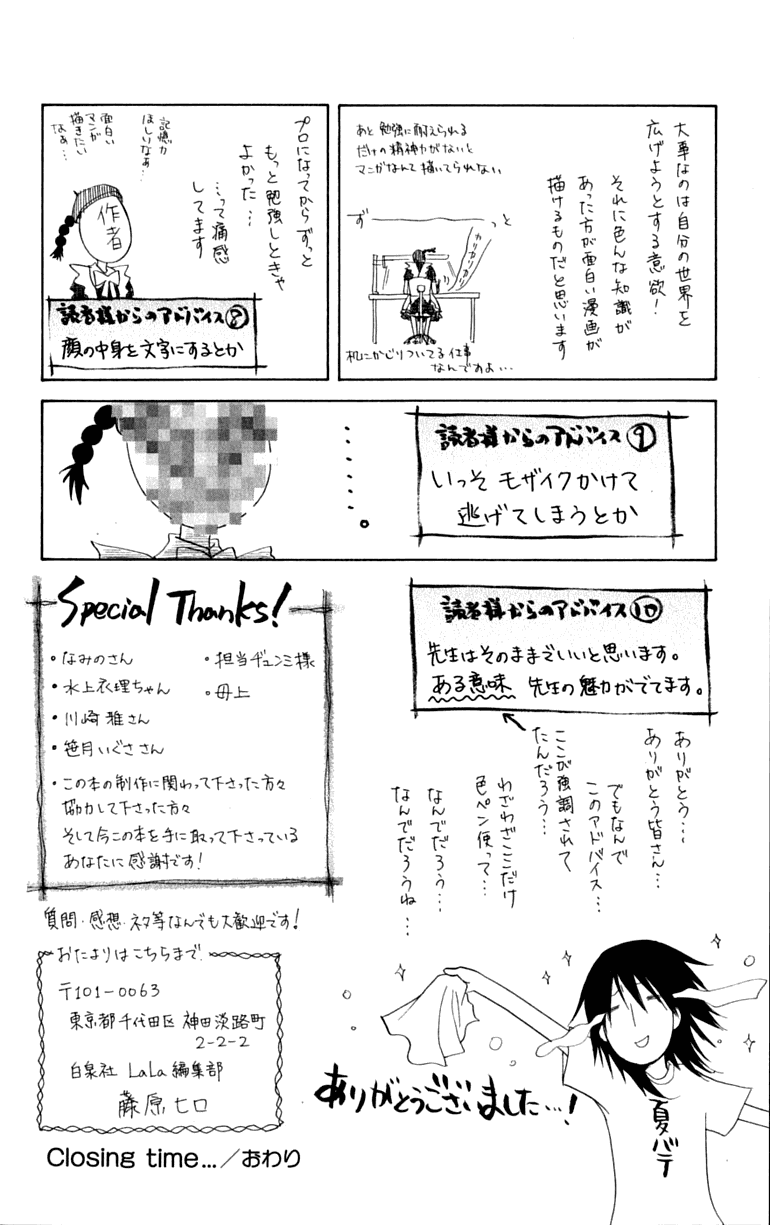 大事なのは自分の世界を
広げようとする意欲！
それに色んな知識が
あった方が面白い漫画が
描けるものだと思います
あと勉強に耐えられる
だけの精神力がないと
マンガなんて描いてられない
ず
っと
カリカリカリカリ
机にかじりついてる仕事
なんですよ…
プロになってからずっと
もっと勉強しときゃ
よかった…
…って痛感
してます
記憶力
ほしいなぁ…
面白い
マンガ
描きたい
なぁ…
作者
読者様からのアドバイス⑧
顔の中身を文字にするとか
読者様からのアドバイス⑨
いっそモザイクかけて
逃げてしまうとか
……。
読者様からのアドバイス⑩
先生はそのままでいいと思います。
ある意味 先生の魅力がでてます。
ありがとう…
ありがとう皆さん…
でもなんで
このアドバイス…
ここが強調されて
たんだろう…
わざわざここだけ
色ペン使って…
なんでだろう…
なんでだろうね…
Special Thanks!
・なみのさん
・水上衣理ちゃん
・川崎雅さん
・笹月いぐささん
・担当ヂュンミ様
・母上
・この本の制作に関わって下さった方々
協力して下さった方々
そして今この本を手に取って下さっている
あなたに感謝です！
質問・感想・ネタ等なんでも大歓迎です！
おたよりはこちらまで
〒101-0063
東京都千代田区神田淡路町
2-2-2
白泉社 LaLa編集部
藤原ヒロ
ありがとうございました…！
夏バテ
Closing time…／おわり